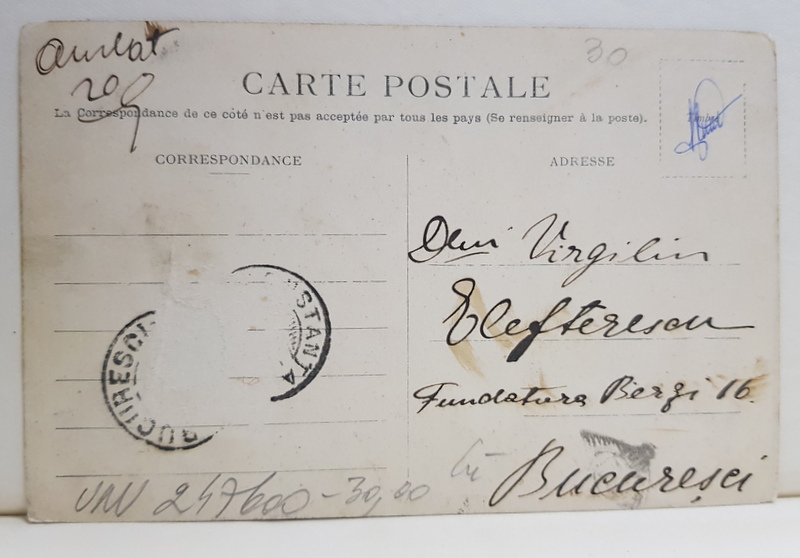 Anulat
30
CARTE POSTALE
La Correspondance de ce côté n'est pas acceptée par tous les pays (Se renseigner à la poste).
CORRESPONDANCE
ADRESSE
Dlui Virgiliu
Elefterescu
Fundatura Berzi 16
București
BUCURESCI
STANTA
247600-30,00